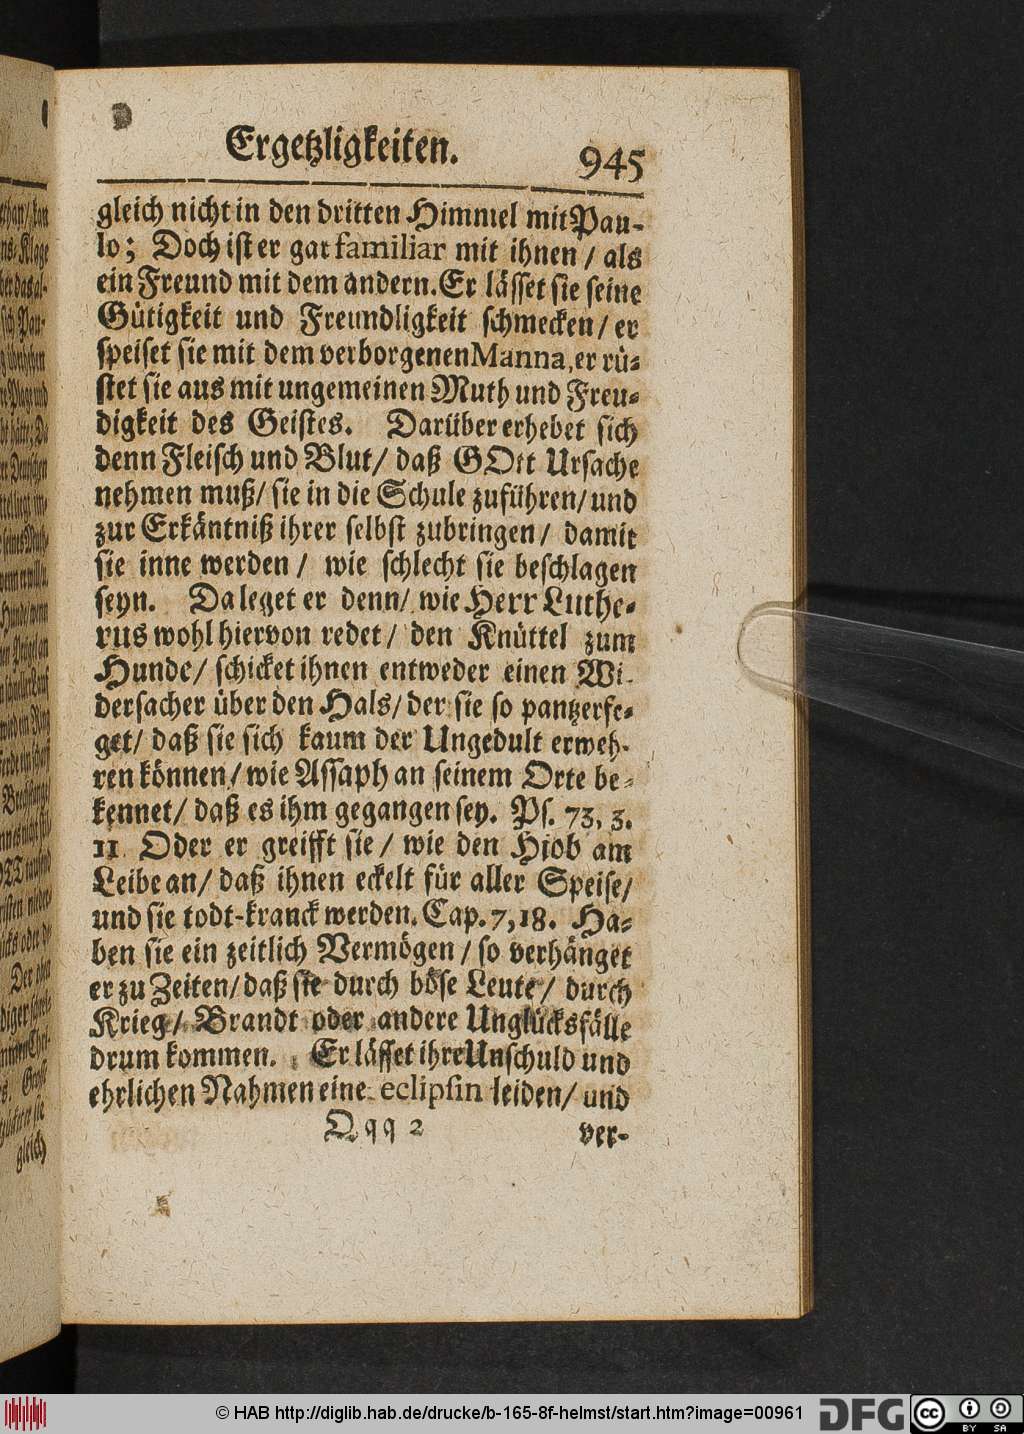 Ergetzligkeiten. 945
gleich nicht in den dritten Himmel mit Pau-
lo; Doch ist er gar familiar mit ihnen / als
ein Freund mit dem andern. Er lässet sie seine
Gütigkeit und Freundligkeit schmecken / er
speiset sie mit dem verborgenen Manna, er rü-
stet sie aus mit ungemeinen Muth und Freu-
digkeit des Geistes. Darüber erhebet sich
denn Fleisch und Blut / daß GOtt Ursache
nehmen muß / sie in die Schule zuführen / und
zur Erkäntniß ihrer selbst zubringen / damit
sie inne werden / wie schlecht sie beschlagen
seyn. Da leget er denn / wie Herr Luthe-
rus wohl hiervon redet / den Knüttel zum
Hunde / schicket ihnen entweder einen Wi-
dersacher über den Hals / der sie so pantzerfe-
get / daß sie sich kaum der Ungedult erweh-
ren können / wie Assaph an seinem Orte be-
kennet / daß es ihm gegangen sey. Ps. 73, 3.
11 Oder er greifft sie / wie den Hiob am
Leibe an / daß ihnen eckelt für aller Speise /
und sie todt-kranck werden. Cap. 7, 18. Ha-
ben sie ein zeitlich Vermögen / so verhänget
er zu Zeiten / daß sie durch böse Leute / durch
Krieg / Brandt oder andere Unglücksfälle
drum kommen. Er lässet ihre Unschuld und
ehrlichen Nahmen eine eclipsin leiden / und
Qqq 2 ver-
© HAB http://diglib.hab.de/drucke/b-165-8f-helmst/start.htm?image=00961 DFG cc BY SA